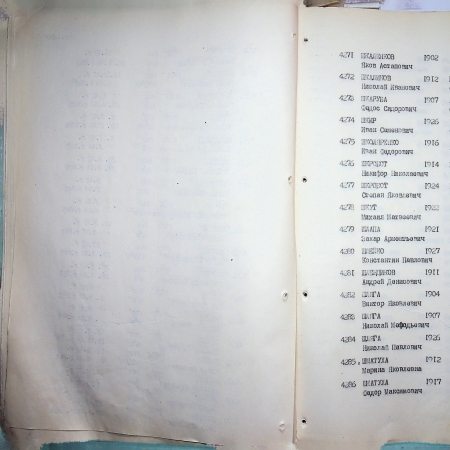 4271 ШКАЛИКОВ 1902
Яков Астапович
4272 ШКАЛИКОВ 1912
Николай Иванович
4273 ШКАРУБА 1907
Федос Сидорович
4274 1926
Иван Семенович
4275 ШКОЛЯРЕНКО 1916
Иван Федорович
4276 ШКРОБОТ 1914
Никифор Николаевич
4277 ШКРОБОТ 1924
Степан Яковлевич
4278 ШКУТ 1922
Михаил Матвеевич
4279 1921
Захар Арсентьевич
4280 1927
Константин Павлович
4281 1911
Андрей Денисович
4282 ШЛЯГА 1904
Виктор Яковлевич
4283 ШЛЯГА 1907
Николай Мефодьевич
4284 ШЛЯГА 1926
Николай Павлович
4285. ШМАТУЛА 1912
Марина Яковлевна
4286 ШМАТУЛА 1917
Федор Максимович